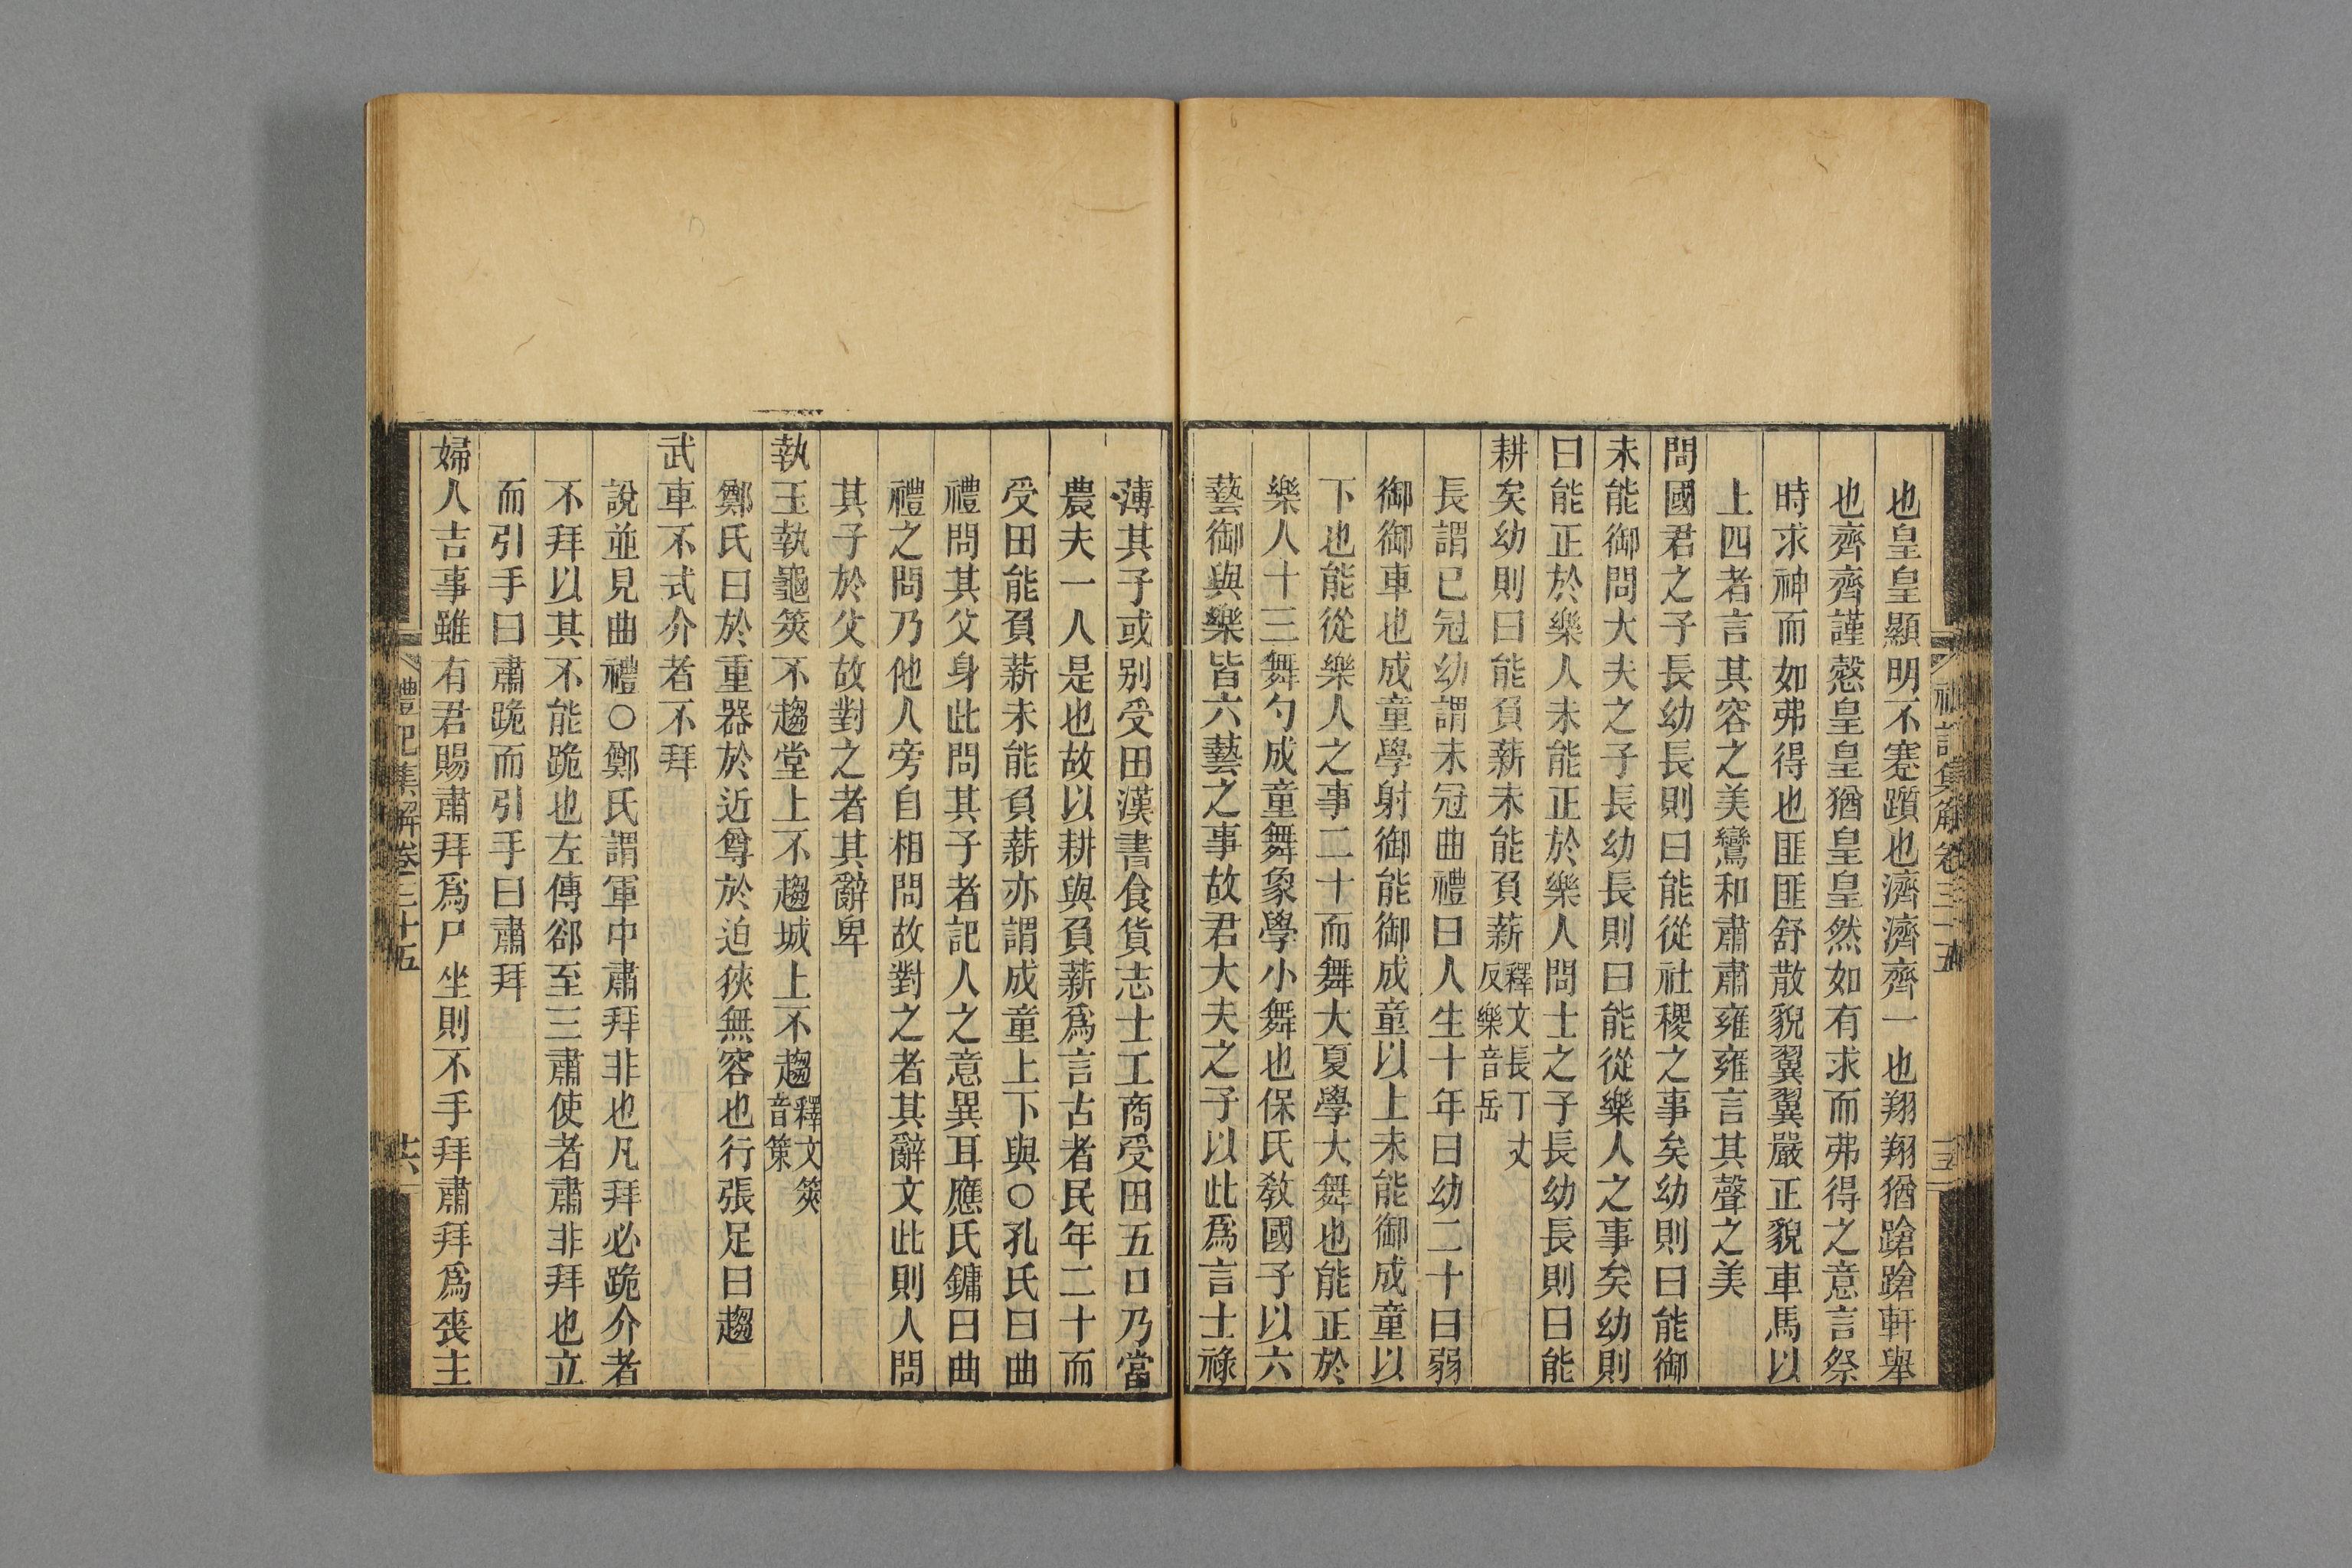 也皇皇顯明不蹇躓也濟濟齊一也翔翔猶蹌蹌軒舉
也齊齊謹慤皇皇猶皇皇然如有求而弗得之意言祭
時求神而如弗得也匪匪舒散貌翼翼嚴正貌車馬以
上四者言其容之美鸞和肅肅雍雍言其聲之美
問國君之子長幼長則曰能從社稷之事矣幼則曰能御
未能御問大夫之子長幼長則曰能從樂人之事矣幼則
曰能正於樂人未能正於樂人問士之子長幼長則曰能
耕矣幼則曰能負薪未能負薪釋文長丁丈反樂音岳
長謂已冠幼謂未冠曲禮曰人生十年曰幼二十曰弱
御御車也成童學射御能御成童以上未能御成童以
下也能從樂人之事二十而舞大夏學大舞也能正於
樂人十三舞勺成童舞象學小舞也保氏敎國子以六
藝御與樂皆六藝之事故君大夫之子以此爲言士祿
薄其子或別受田漢書食貨志士工商受田五口乃當
農夫一人是也故以耕與負薪爲言古者民年二十而
受田能負薪未能負薪亦謂成童上下與○孔氏曰曲
禮問其父身此問其子者記人之意異耳應氏鏞曰曲
禮之問乃他人旁自相問故對之者其辭文此則人問
其子於父故對之者其辭卑
執玉執龜筴不趨堂上不趨城上不趨釋文筴音策
鄭氏曰於重器於近尊於迫狹無容也行張足曰趨
武車不式介者不拜
說並見曲禮○鄭氏謂軍中肅拜非也凡拜必跪介者
不拜以其不能跪也左傳郤至三肅使者肅非拜也立
而引手曰肅跪而引手曰肅拜
婦人吉事雖有君賜肅拜爲尸坐則不手拜肅拜爲喪主
禮記集解卷三十五